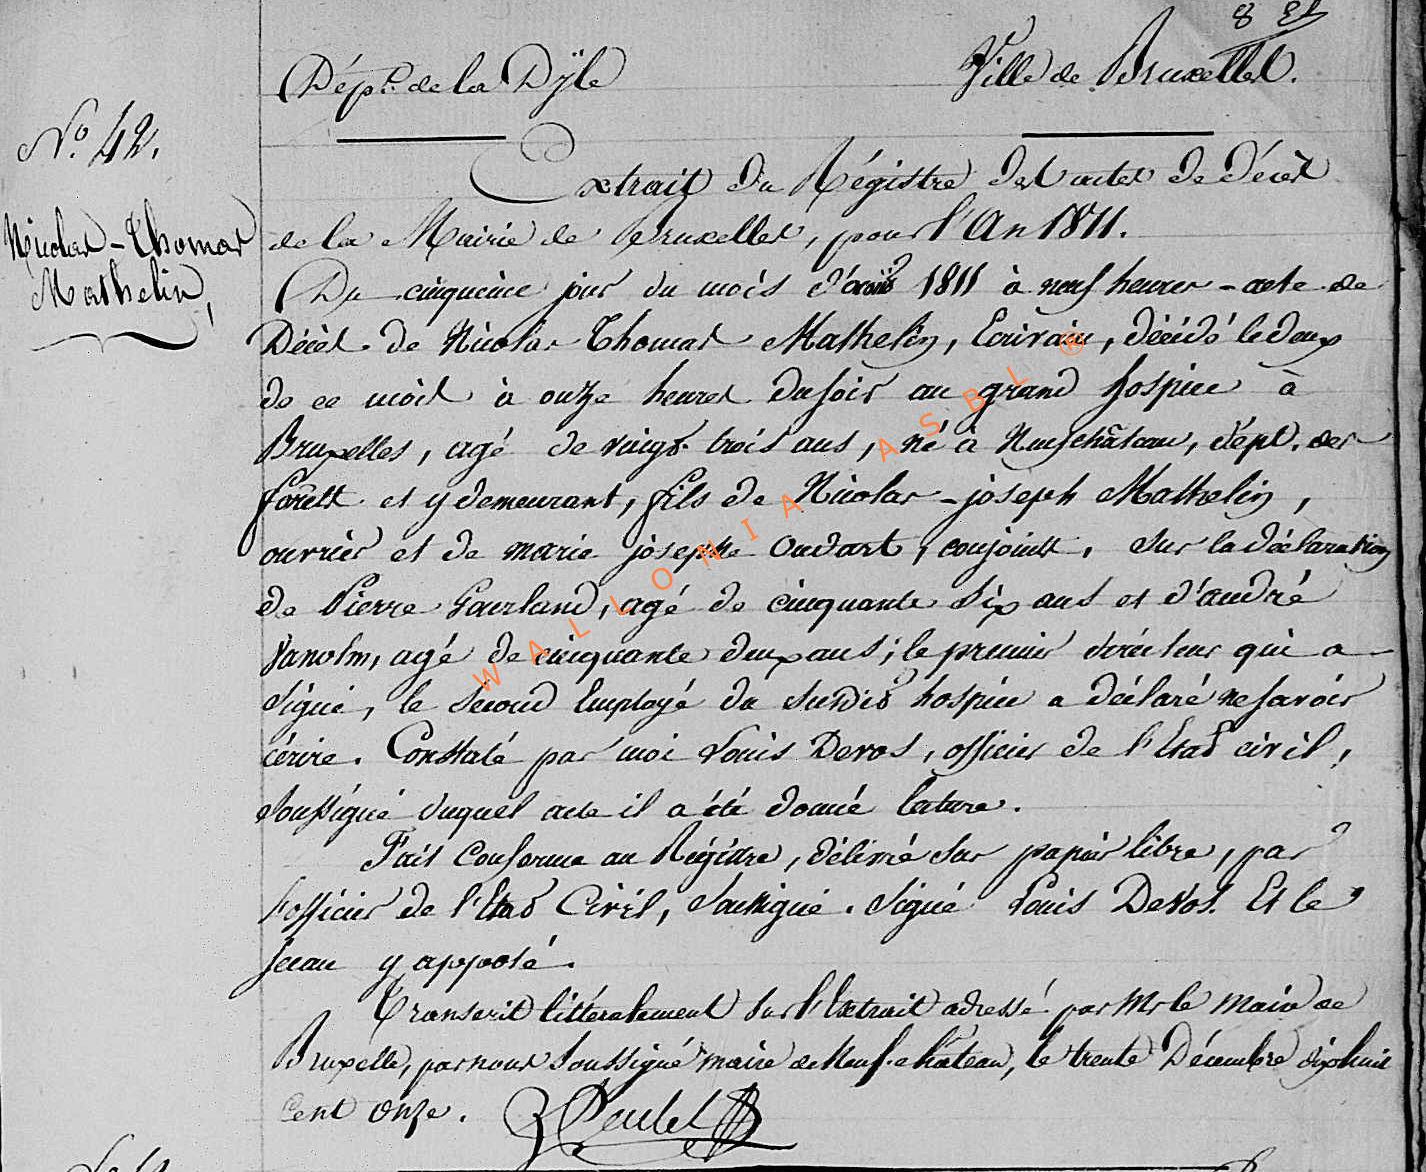 Dépt. de la Dÿle
Ville de Bruxelles.
No. 42.
Nicolas-Thomas
Mathelin,
Extrait du Régistre des actes de décès
de la Mairie de Bruxelles, pour l'An 1811.
Du cinquième jour du mois d' 1811 à neuf heures - acte de
Décès de Nicolas Thomas Mathelin, Ecrivain, décédé le deux
de ce mois à onze heures du soir au grand hospice à
Bruxelles, agé de vingt trois ans, né à Neufchâteau, dépt. des
forêts et y demeurant, fils de Nicolas-joseph Mathelin,
ouvrier et de marie josephe Oudart, conjoints. Sur la déclaration
de Pierre Gourland, agé de cinquante six ans et d'andré
Vanolm, agé de cinquante deux ans; le premier directeur qui a
signé, le second Employé du susdit hospice a déclaré ne savoir
écrire. Constaté par moi Louis Devos, officier de l'Etat civil,
soussigné duquel acte il a été donné lecture.
Fait conforme au Régistre, délivré sur papier libre, par
l'officier de l'Etat Civil, soussigné. signé Louis Devos. Et le
sceau y apposé.
Transcrit littéralement sur l'Extrait adressé par Mr le Maire de
Bruxelle, par nous soussigné maire de Neufchâteau, le trente Décembre dix huit
cent onze.
WALLONIA ASBL ®